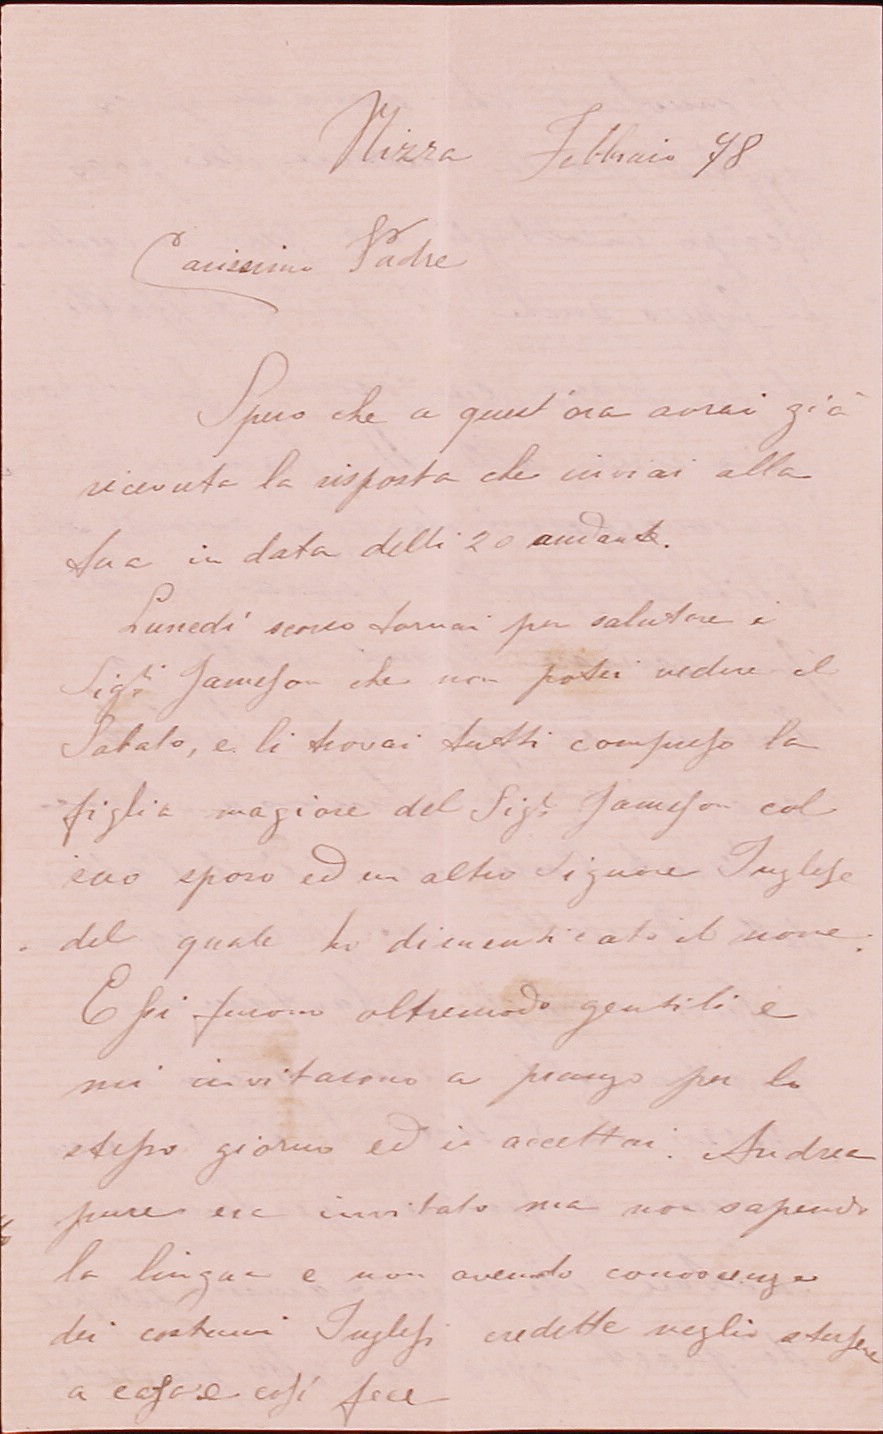 Nizza Febbraio 78
Carissimo Padre
Spero che a quest'ora avrai già
ricevuta la risposta che inviai alla
tua in data delli 20 andante.
Lunedì scorso tornai per salutare i
Sigri Jameson che non potei vedere il
Sabato, e li trovai tutti compreso la
figlia magiore del Sigr Jameson col
suo sposo ed un altro Signore Inglese
del quale ho dimenticato il nome.
Essi furono oltremodo gentili e
mi invitarono a pranzo per lo
stesso giorno ed io accettai. Andrea
pure era invitato ma non sapendo
la lingua e non avendo conoscenza
dei costumi Inglesi credette meglio starsene
a casa e così fece